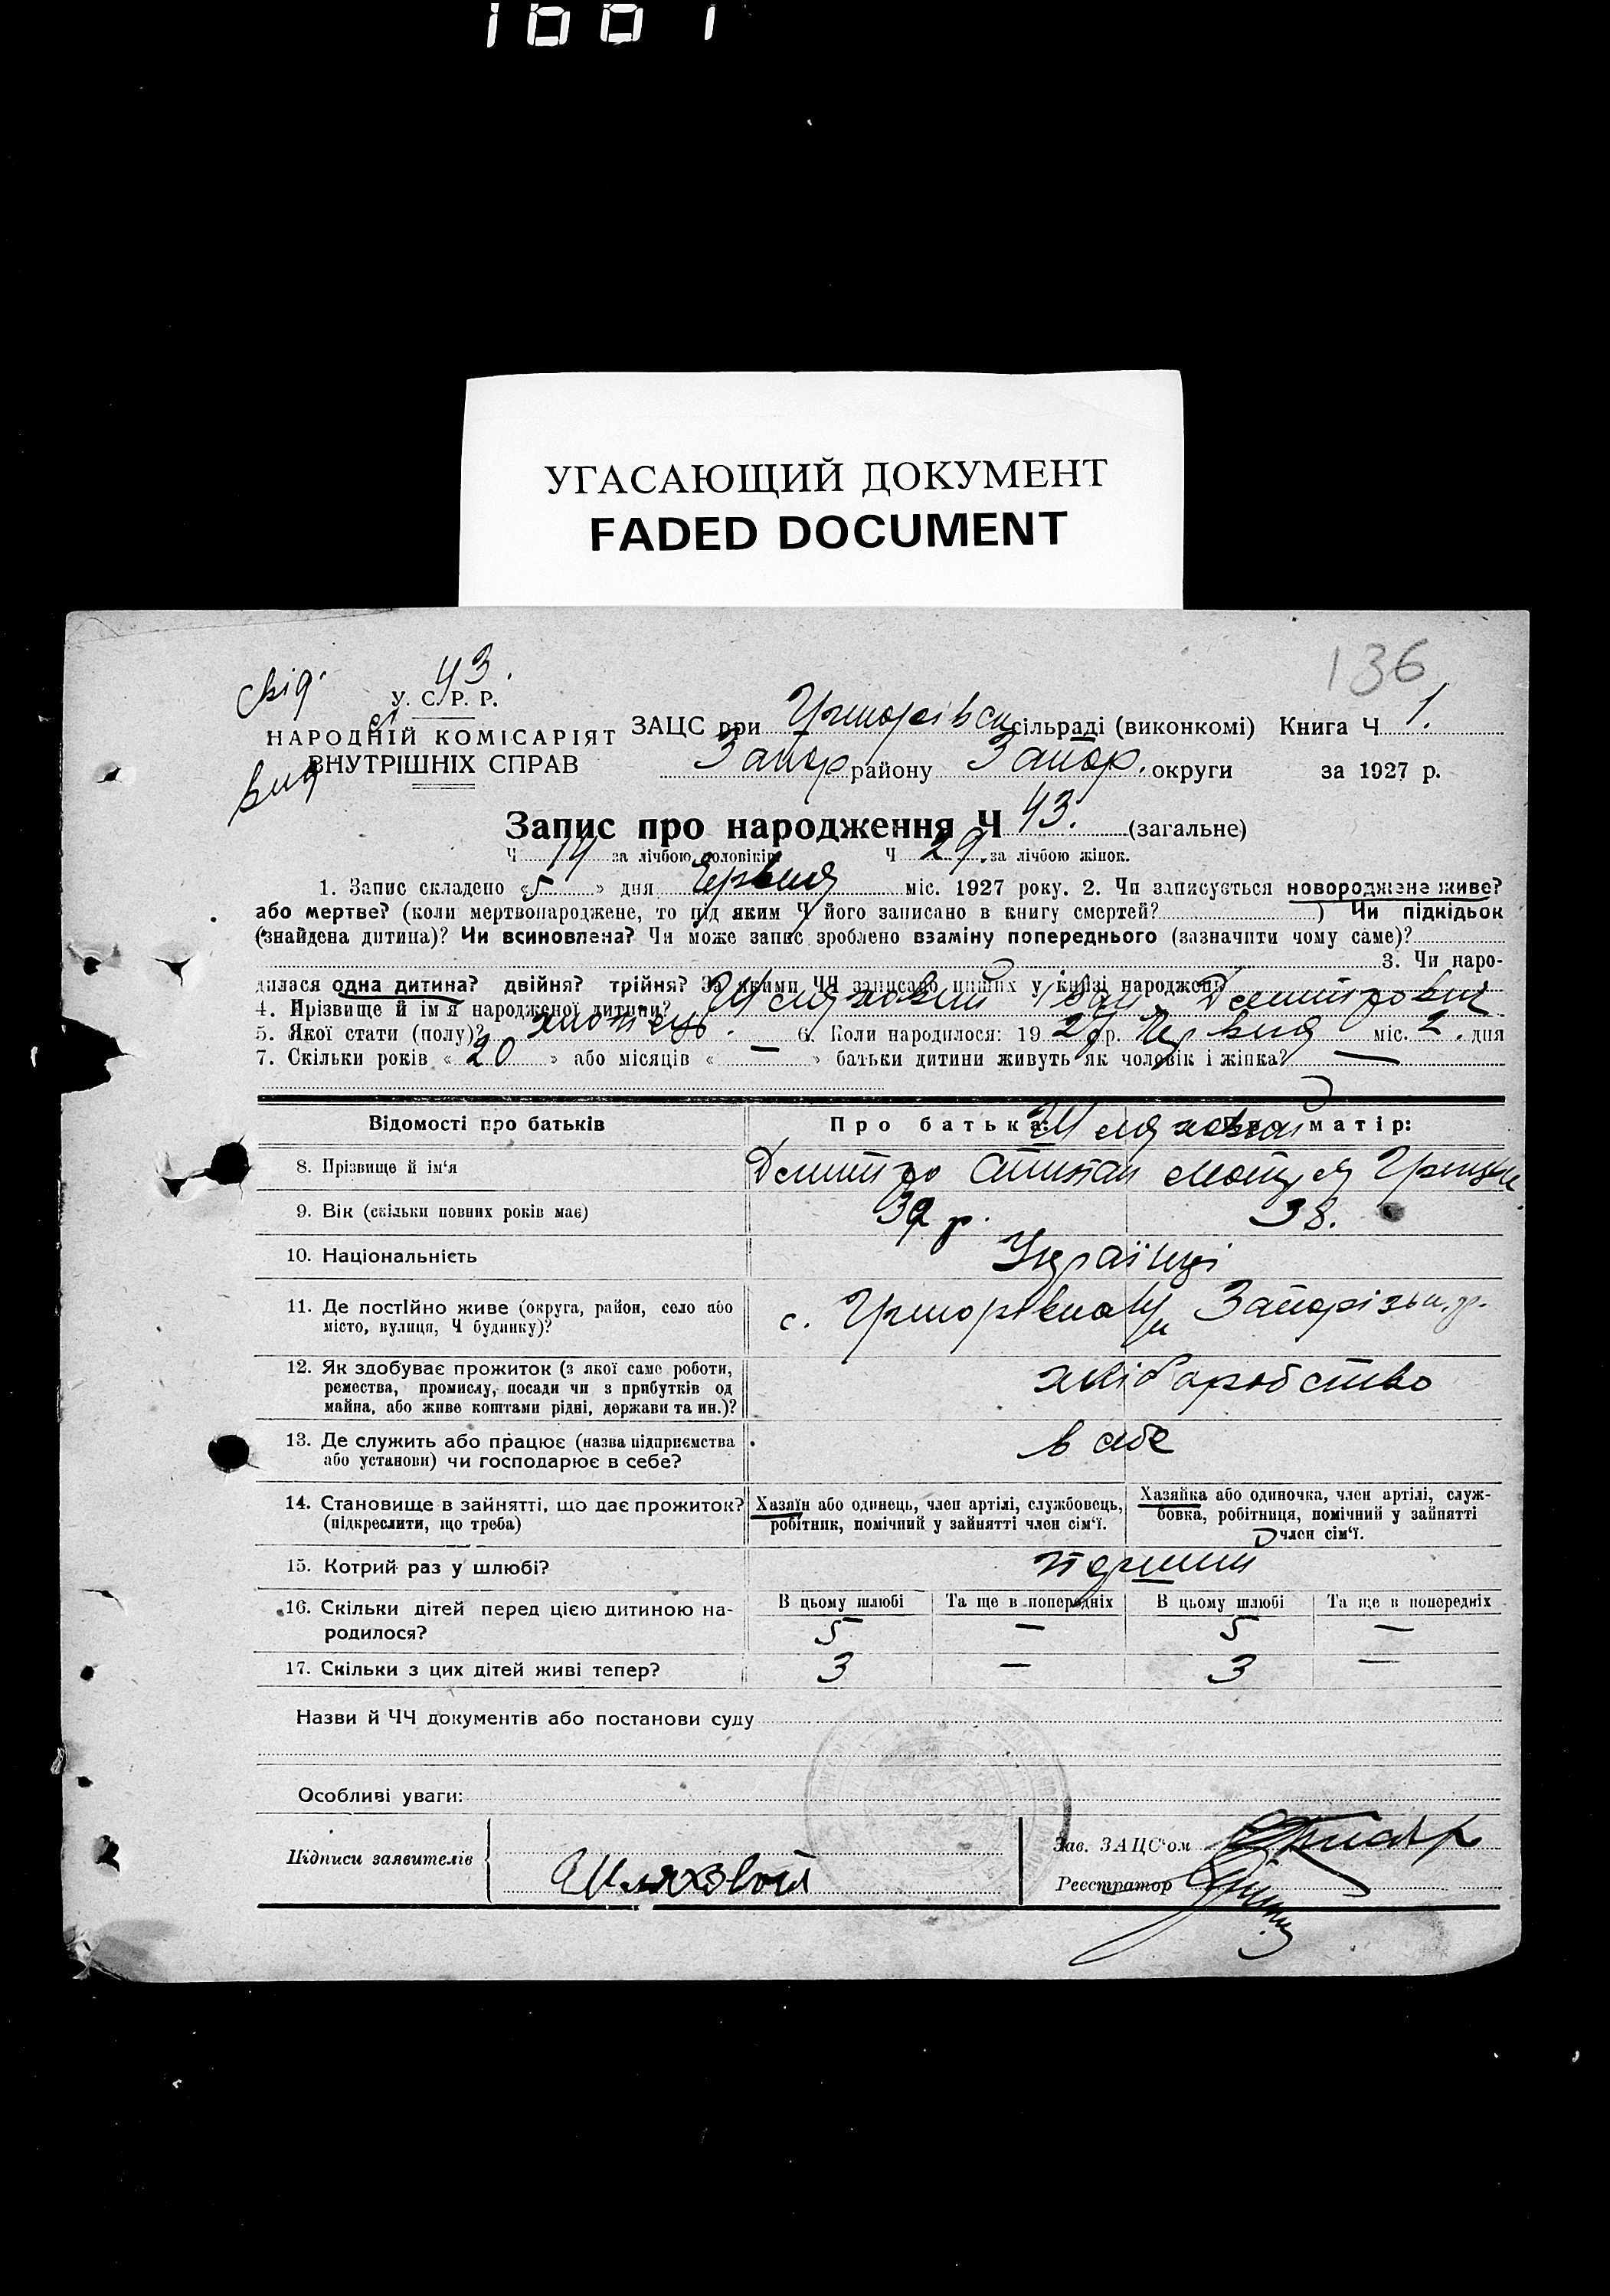 1661
УГАСАЮЩИЙ ДОКУМЕНТ
FADED DOCUMENT
136
свід. 43.
У. С. Р. Р.
НАРОДНІЙ КОМІСАРІЯТ
ВНУТРІШНІХ СПРАВ
вид
ЗАЦС при сільраді (виконкомі) Книга Ч 1.
Запор району Запор. округи за 1927 р.
Запис про народження Ч 43. (загальне)
Ч 14 за лічбою чоловіків Ч 29. за лічбою жінок.
1. Запис складено «5» дня Червня міс. 1927 року. 2. Чи записується новороджене живе?
або мертве? (коли мертвонароджене, то під яким Ч його записано в книгу смертей? ) Чи підкідьок
(знайдена дитина)? Чи всиновлена? Чи може запис зроблено взаміну попереднього (зазначити чому саме)?
3. Чи наро-
дилася одна дитина? двійня? трійня? За якими ЧЧ записано инших у книзі народжен?
4. Прізвище й ім'я народженої дитини? Шляховий Іван Дмитрович
5. Якої стати (полу)? хлопець. 6. Коли народилося: 1927 р. Червня міс. 2. дня
7. Скільки років «20» або місяців « — » батьки дитини живуть як чоловік і жінка? —
Відомості про батьків Про батька: Про матір:
Шляховий
8. Прізвище й ім'я Дмитро Степан Мотря Гриць
9. Вік (скільки повних років має) 39 р. 38.
10. Національність Українці
11. Де постійно живе (округа, район, село або
місто, вулиця, Ч будинку)? с. Запорізьк. р.
12. Як здобуває прожиток (з якої саме роботи,
ремества, промислу, посади чи з прибутків од
майна, або живе коштами рідні, держави та ин.)? хліборобство
13. Де служить або працює (назва підприємства
або установи) чи господарює в себе? в себе
14. Становище в зайнятті, що дає прожиток?
(підкреслити, що треба)
Хазяїн або одинець, член артілі, службовець,
робітник, помічний у зайнятті член сім'ї.
Хазяйка або одиночка, член артілі, служ-
бовка, робітниця, помічний у зайнятті
член сім'ї.
15. Котрий раз у шлюбі? перший
16. Скільки дітей перед цією дитиною на-
родилося?
В цьому шлюбі Та ще в попередніх В цьому шлюбі Та ще в попередніх
5 — 5 —
17. Скільки з цих дітей живі тепер? 3 — 3 —
Назви й ЧЧ документів або постанови суду
Особливі уваги:
Підписи заявителів Шляховой
Зав. ЗАЦС'ом
Реєстратор